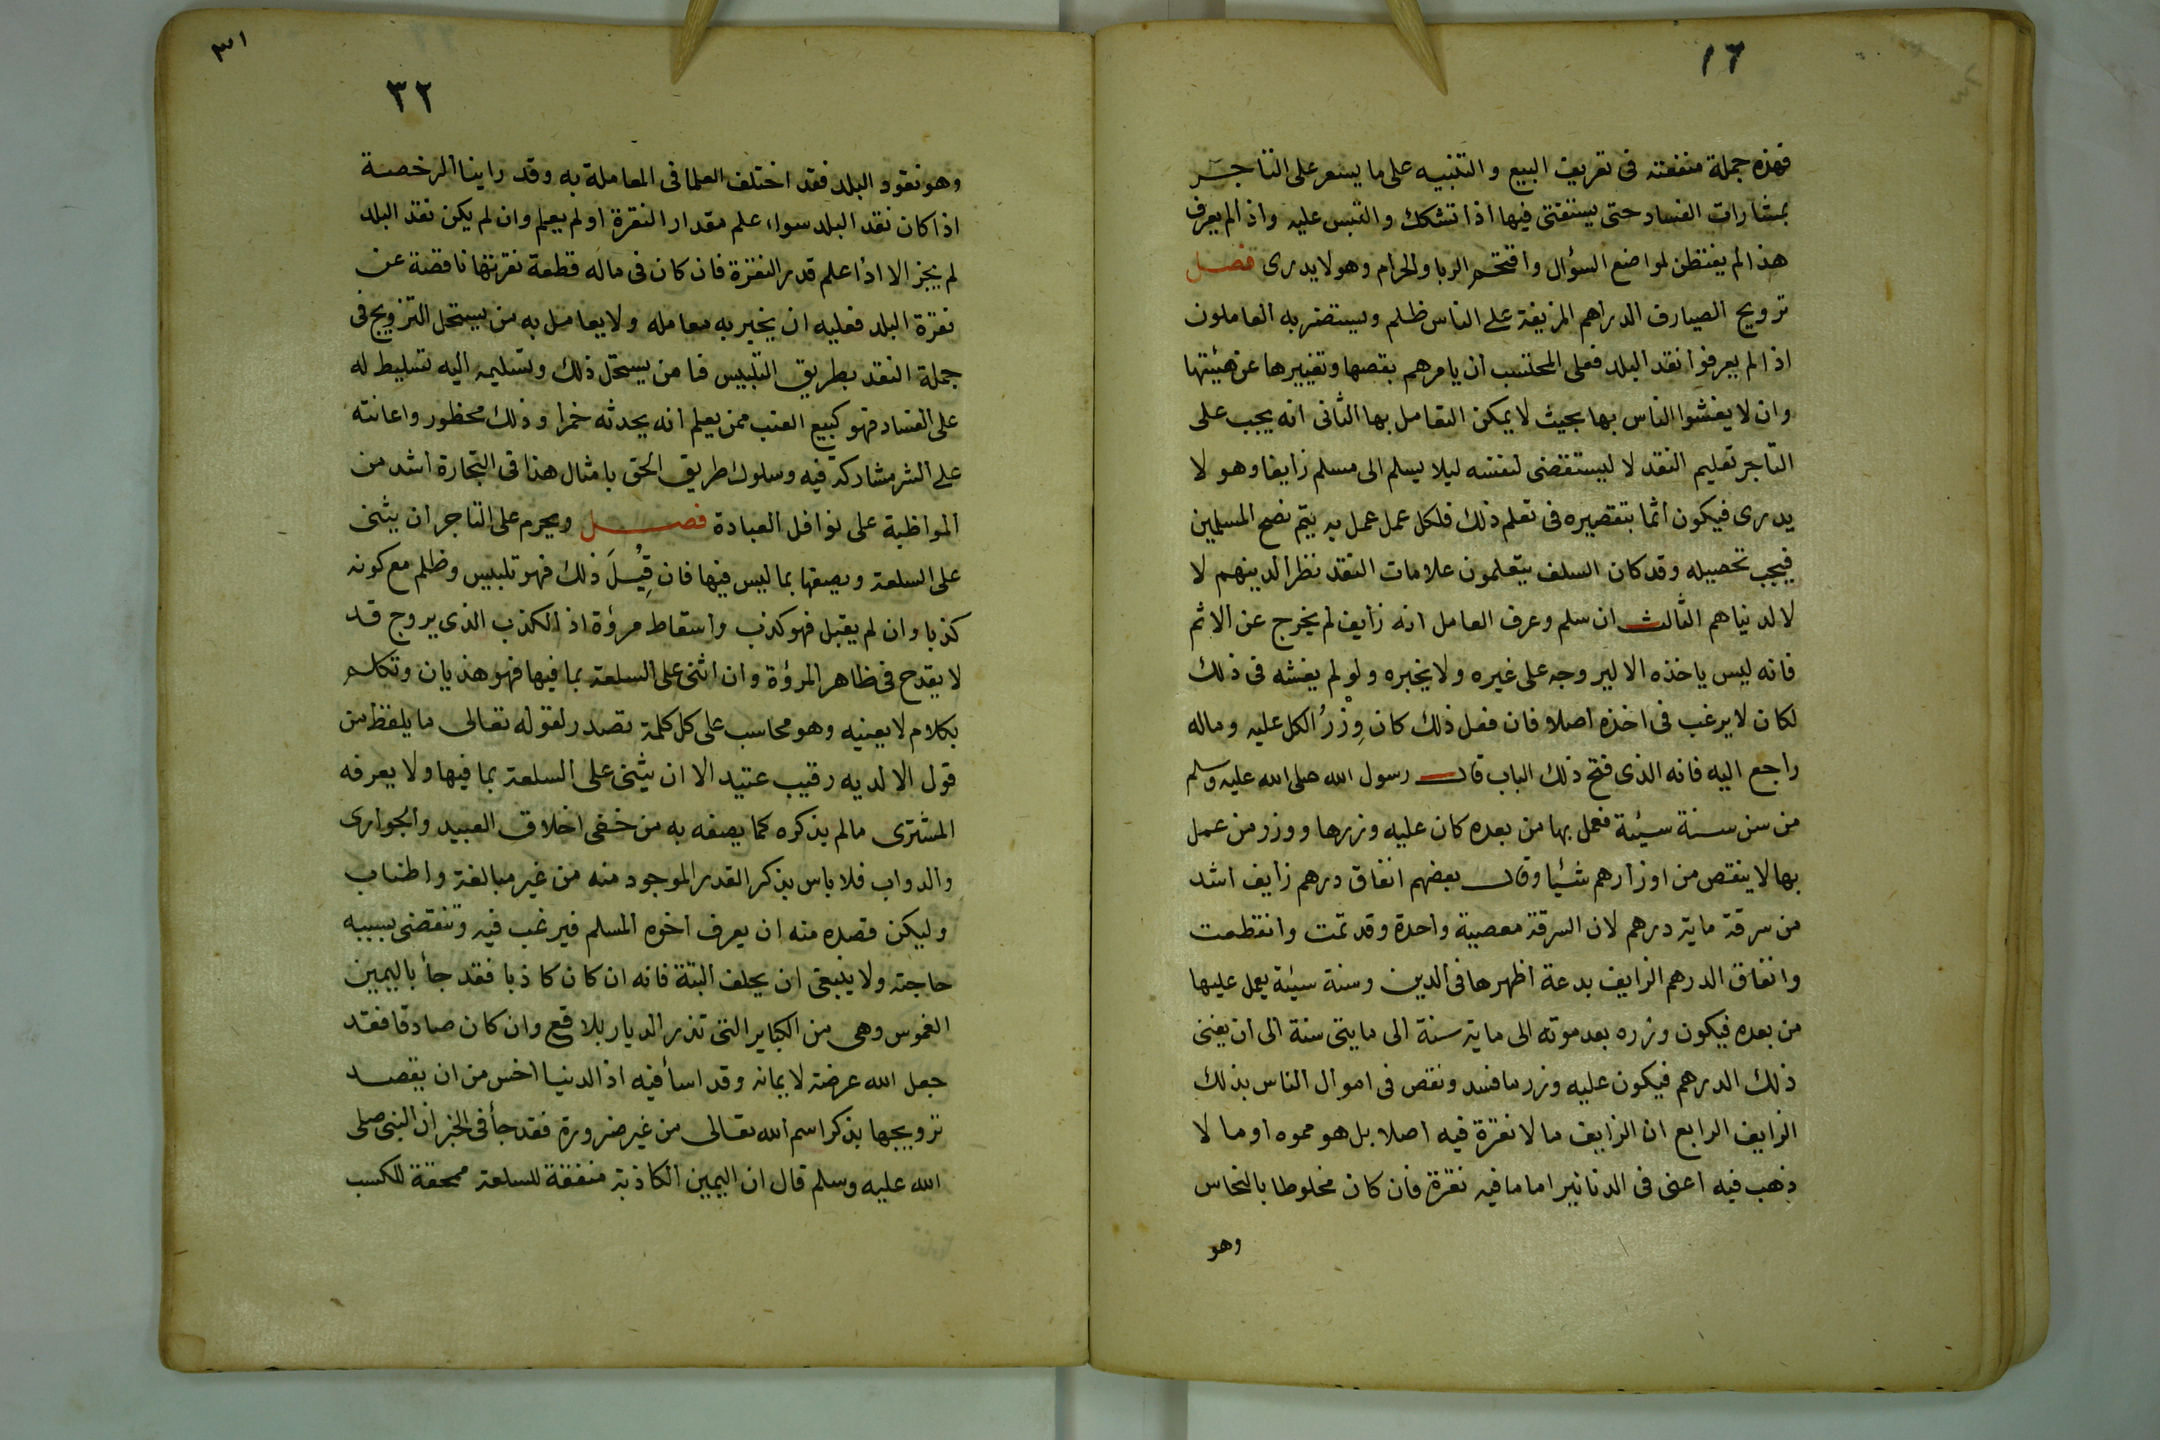 ١٦
فهذه جملة منفعته فى تعريف البيع والتنبيه على ما يشعر على التاجر
بمثارات الفساد حتى يستفتى فيها اذا تشكك والتبس عليه واذا لم يعرف
هذا لم يفتظن لمواضع السؤال واقتحم الربا والحرام وهو لا يدرى فصل
ترويج الصيارف الدراهم المزيفة على الناس ظلم ويستضر به العاملون
اذا لم يعرفوا نقد البلد فعلى المحتسب ان يامرهم بقصها وتغييرها عن هيئتها
وان لا يغشوا الناس بها بحيث لا يمكن التعامل بها الثانى انه يجب على
التاجر تعليم النقد لا ليستقضى لنفسه ليلا يسلم الى مسلم زايفا وهو لا
يدرى فيكون اثما بتقصيره فى تعلم ذلك فلكل عمل عمل به يتم نصح المسلمين
فيجب تحصيله وقد كان السلف يتعلمون علامات النقد نظرا لدينهم لا
لا لدنياهم الثالث ان سلم وعرف العامل انه زايف لم يخرج عن الاثم
فانه ليس ياخذه الا ليروجه على غيره ولا يخبره ولو لم يغشه فى ذلك
لكان لا يرغب فى اخذه اصلا فان فعل ذلك كان وِزْرُ الكل عليه وماله
راجع اليه فانه الذى فتح ذلك الباب قال رسول الله صلى الله عليه وسلم
من سن سنة سيئة فعمل بها من بعده كان عليه وزرها ووزر من عمل
بها لا ينقص من اوزارهم شيئا وقال بعضهم انفاق درهم زايف اشد
من سرقة ماية درهم لان السرقة معصية واحدة وقد تمت وانقطعت
وانفاق الدرهم الزايف بدعة اظهرها فى الدين وسنة سيئة يعمل عليها
من بعده فيكون وزره بعد موته الى ماية سنة الى مايتى سنة الى ان يفنى
ذلك الدرهم فيكون عليه وزر ما فسد ونقص فى اموال الناس بذلك
الزايف الرابع ان الزايف ما لا نقرة فيه اصلا بل هو مموه او ما لا
ذهب فيه اعنى فى الدنانير اما ما فيه نقرة فان كان مخلوطا بالنحاس
وهو
٣١
٣٢
وهو نقود البلد فقد اختلف العلما فى المعاملة به وقد راينا الرخصة
اذا كان نقد البلد سواء علم مقدار النقرة او لم يعلم وان لم يكن نقد البلد
لم يجز الا اذا علم قدر النقرة فان كان فى ماله قطعة نقرتها ناقصة عن
نقرة البلد فعليه ان يخبر به معامله ولا يعامل به من يستحل الترويج فى
جملة النقد بطريق التلبيس فامن يستحل ذلك وتسليمه اليه تسليط له
على الفساد فهو كبيع العنب ممن يعلم انه يحدثه خمرا وذلك محظور واعانته
على الشر مشاركة فيه وسلوك طريق الحق بامثال هذا فى التجارة اشد من
المواظبة على نوافل العبادة فصل ويحرم على التاجر ان يثنى
على السلعة ويصفها بما ليس فيها فان قِيُلَ ذلك فهو تلبيس وظلم مع كونه
كذبا وان لم يقبل فهو كذب واسقاط مروْة اذ الكذب الذى يروج قد
لا يقدح فى ظاهر المروْة وان اثنى على السلعة بما فيها فهو هذيان وتكلم
بكلام لا يعنيه وهو محاسب على كل كلمة تصدر لقوله تعالى ما يلفظ من
قول الا لديه رقيب عتيد الا ان يثنى على السلعة بما فيها ولا يعرفه
المشترى مالم يذكره كما يصفه به من خفى اخلاق العبيد والجوارى
والدواب فلا باس بذكر القدر الموجود منه من غير مبالغة واطناب
وليكن قصده منه ان يعرف اخوه المسلم فيرغب فيه وتنقضى بسببه
حاجته ولا ينبغى ان يحلف البتة فانه ان كان كاذبا فقد جأ باليمين
الغموس وهى من الكباير التى تذر الديار بلاقع وان كان صادقا فقد
جعل الله عرضة لايمانه وقد اسأ فيه اذ الدنيا اخس من ان يقصد
ترويجها بذكر اسم الله تعالى من غير ضرورة فقد جأ فى الخبر ان النبى صلى
الله عليه وسلم قال ان اليمين الكاذبة منفقة للسلعة ممحقة للكسب